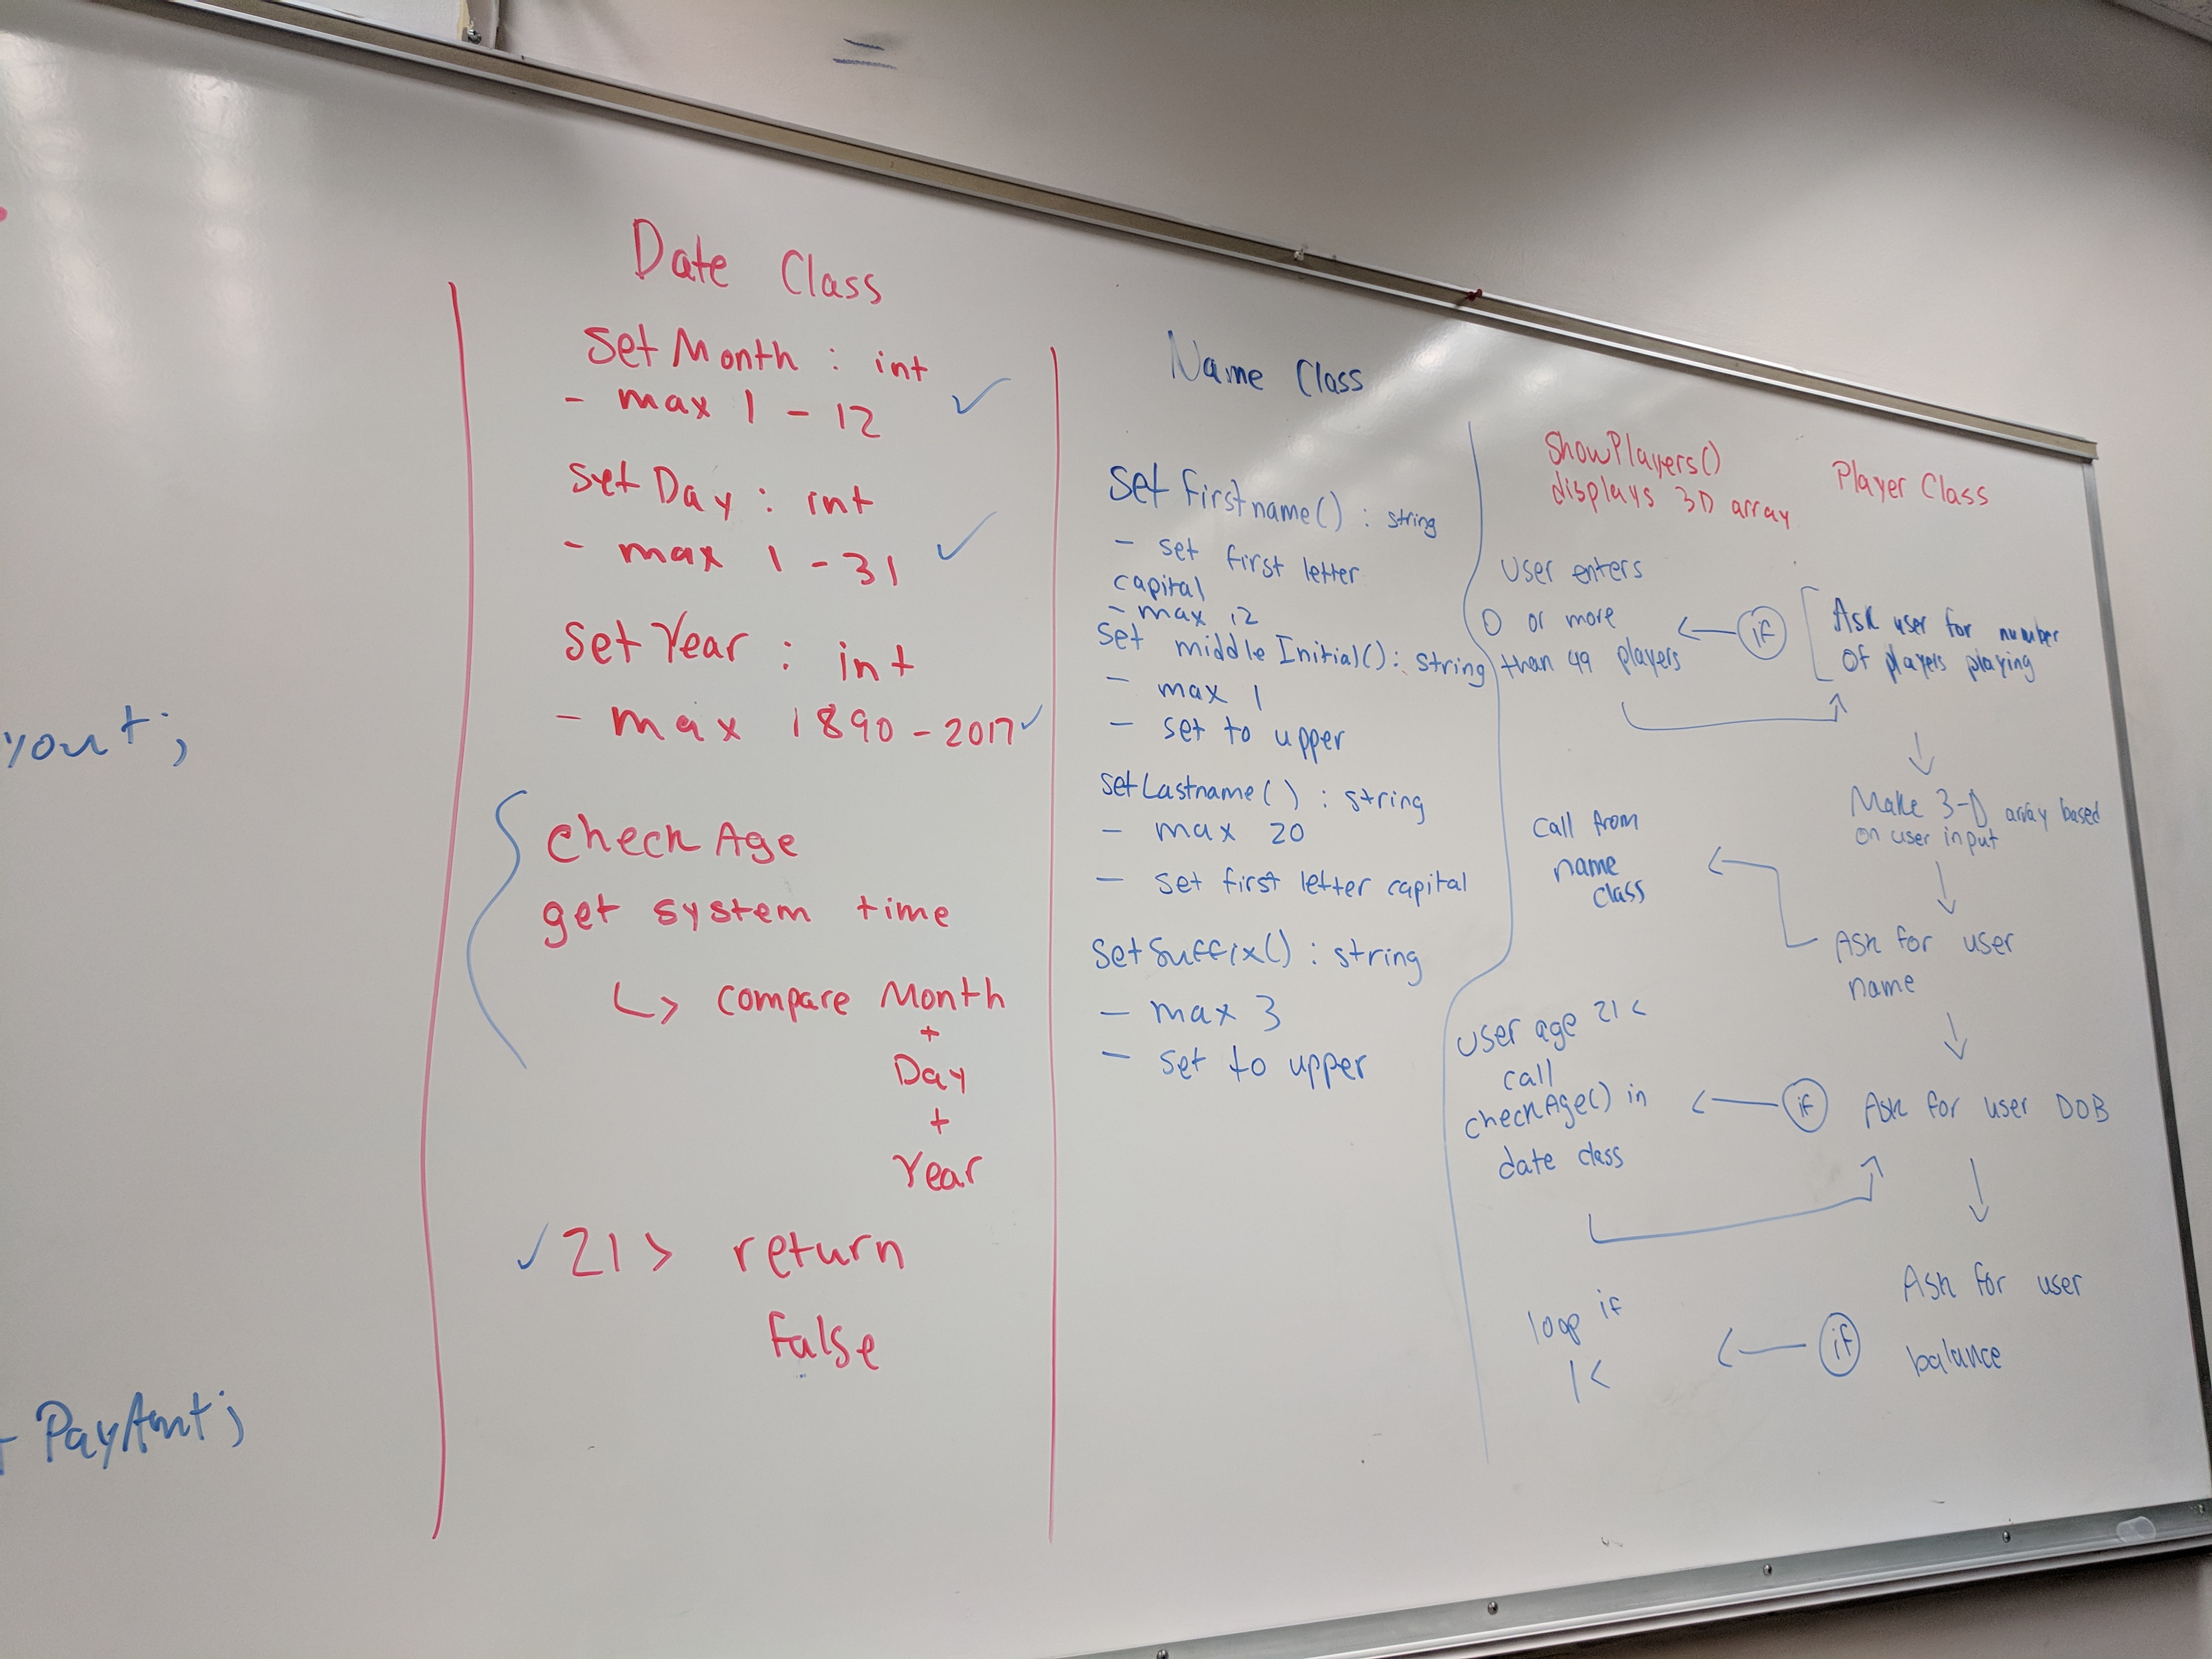 yout;
PayAmt;
Date Class
setMonth : int
- max 1 - 12 ✓
setDay : int
- max 1 - 31 ✓
setYear : int
- max 1890 - 2017 ✓
checkAge
get system time
↳ compare Month
+
Day
+
Year
✓ 21 > return
false
Name Class
set firstname() : string
- set first letter
capital
- max 12
set middleInitial() : string
- max 1
- set to upper
setLastname() : string
- max 20
- set first letter capital
setSuffix() : string
- max 3
- set to upper
showPlayers()
displays 3D array
Player Class
User enters
0 or more
than 49 players
if
Ask user for number
of players playing
Make 3-D array based
on user input
call from
name
class
Ask for user
name
user age 21 <
call
checkAge() in
date class
if
Ask for user DOB
loop if
1 <
if
Ask for user
balance